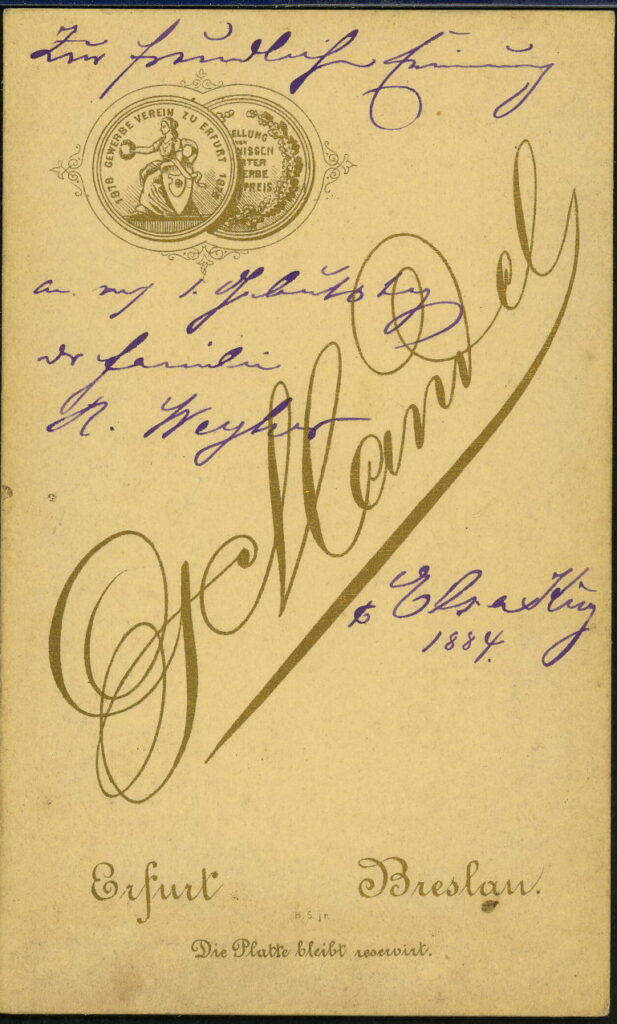 Zur freundlichen Erinnerung
1878 GEWERBE VEREIN ZU ERFURT 1878
ELLUNG
VON
NISSEN
TER
ERBE
PREIS
an. my 1. Geburtstag
der Familie
A. Weyher
J Mandel
Elsa
1884.
Erfurt Breslau.
H. S. jr.
Die Platte bleibt reservirt.